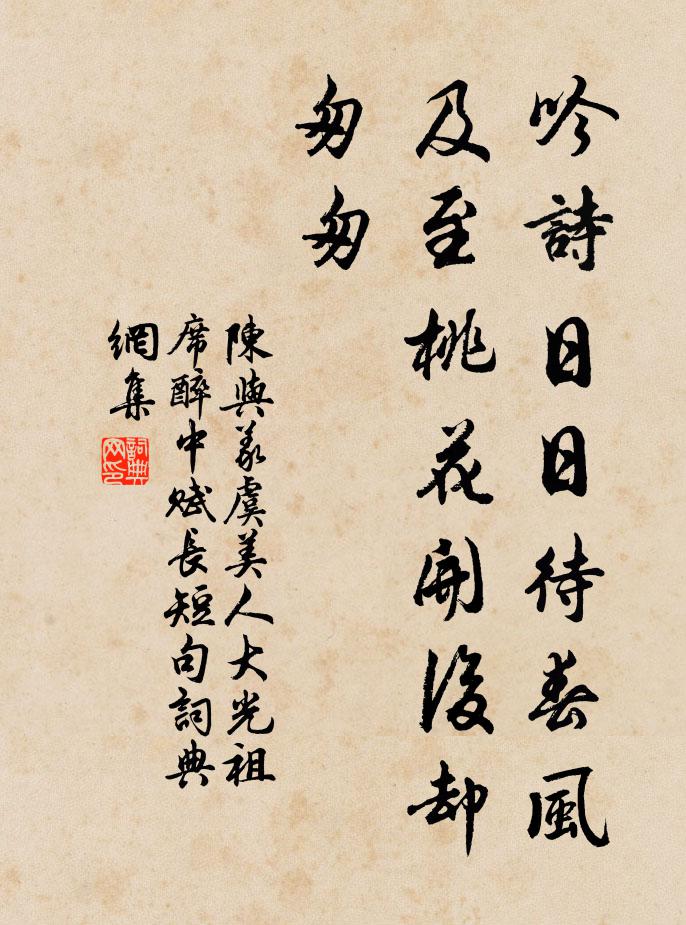 吟詩日日待春風
及至桃花開後却
匆匆
陳與義虞美人大光祖
席醉中賦長短句詞典
網集
詞典
網印